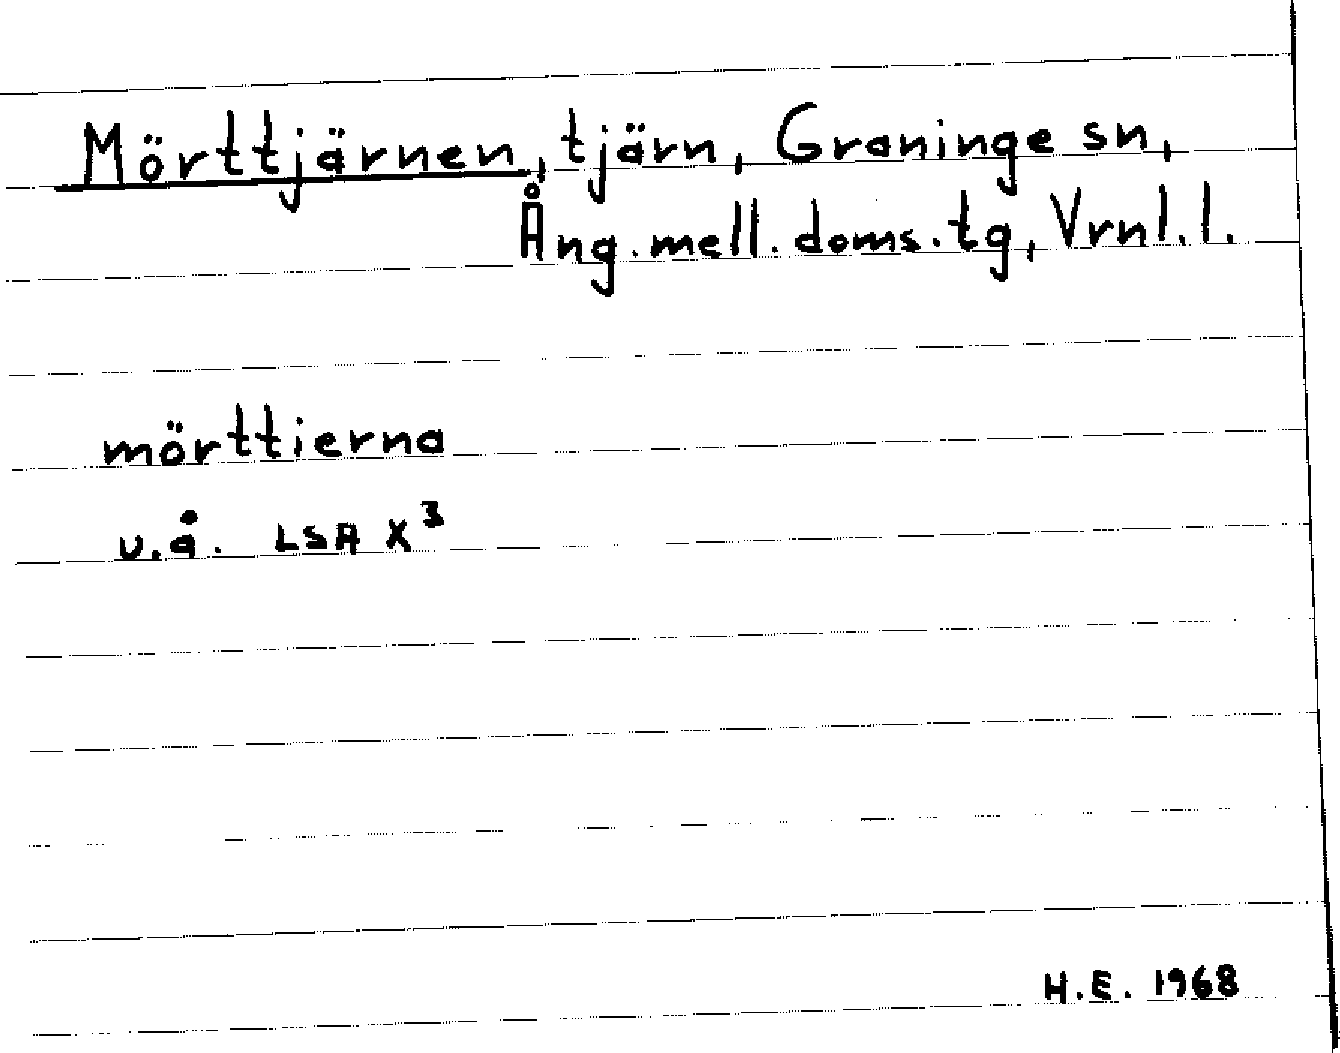 Mörttjärnen, tjärn, Graninge sn,
Ång. mell. doms. tg, Vrnl. l.
mörttierna
u.å. LSA X³
H.E. 1968